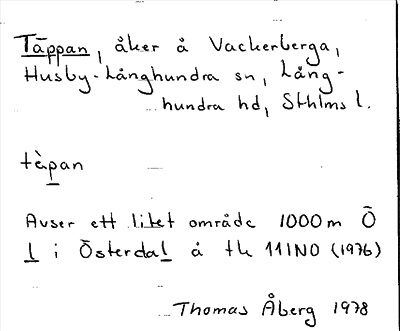 Täppan, åker å Vackerberga,
Husby-Långhundra sn, Lång-
hundra hd, Sthlms l.
tàpan
Avser ett litet område 1000m Ö
l i Österdal å tk 11INO (1976)
Thomas Åberg 1978